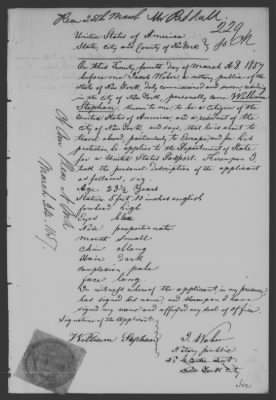 Rec 25th March Mr P. N. Hall
229
United States of America
State, city and County of New York } ss
On this Twenty fourth day of March A.D. 1857
before me Jacob Weber a notary public of the
State of New York, duly commissioned and residing
in the city of New York, personally came William
Stephan, known to me to be a citizen of the
United States of America, and a resident of the
city of New York and says, that he is about to
travel abroad, particularly to Europe and for his
protection he applies to the Department of State
for a United States Passport. Thereupon I
took the personal description of the applicant
as follows, viz.
Age 23 1/2 Years
Stature 5 feet 10 inches english
forehead high
Eyes blue
Nose proportionate
mouth small
chin oblong
Hair dark
complexion pale
face long
In witness whereof the applicant in my presence
has signed his name, and thereupon I have
signed my name and affixed my seal of office.
Signature of the Applicant:
William Stephan
J. Weber
Notary public
New York City
Sir
March 24 1857